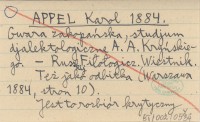 APPEL Karol 1884.
Gwara zakopańska, studjum
djalektologiczne A. A. Kryńskie-
go. - Russ. Filologicz. Wiestnik.
Też jako odbitka (Warszawa
1884, stron 10).
Jest to rozbiór krytyczny